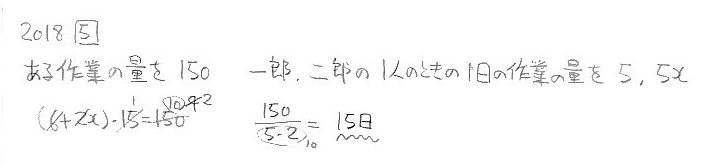 2018 5
ある作業の量を 150 一郎、二郎の1人のときの1日の作業の量を 5, 5x
150/(5・2) = 15日